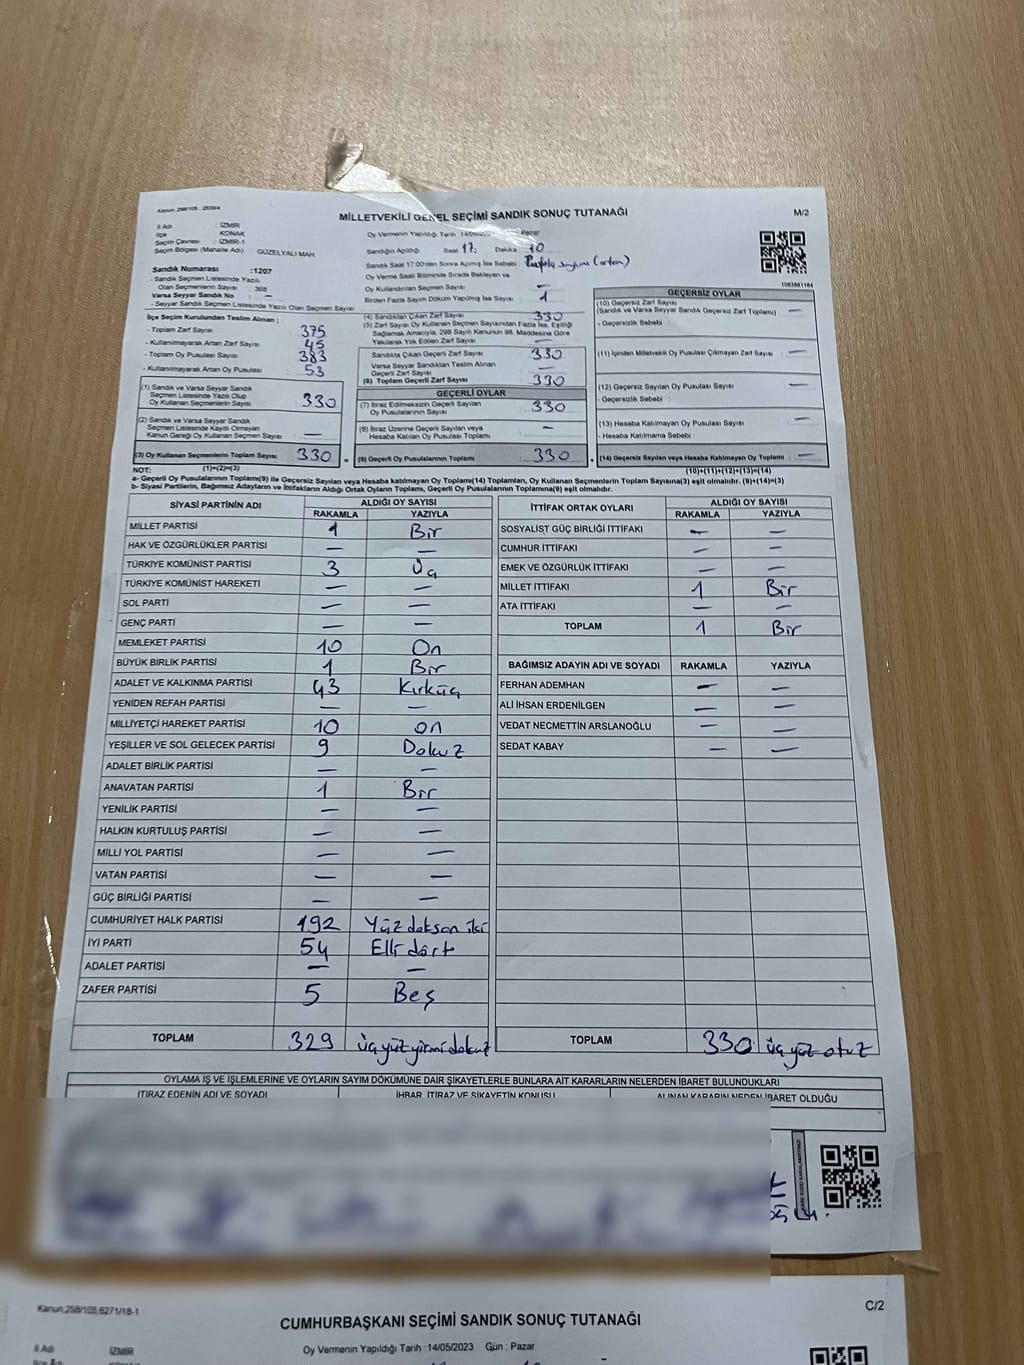 Kanun: 298/105
MİLLETVEKİLİ GENEL SEÇİMİ SANDIK SONUÇ TUTANAĞI
M/2
İl Adı : İZMİR
İlçe : KONAK
Seçim Çevresi : İZMİR-1
Seçim Bölgesi (Mahalle Adı) : GÜZELYALI MAH.
Oy Vermenin Yapıldığı Tarih : Pazar
Sandığın Açıldığı Saat 17: Dakika 10
Sandık Saat 17:00'den Sonra Açılmış İse Sebebi :
Oy Verme Saati Bitiminde Sırada Bekleyen ve
Oy Kullandırılan Seçmen Sayısı —
Birden Fazla Sayım Döküm Yapılmış İse Sayısı 1
Sandık Numarası :1207
- Sandık Seçmen Listesinde Yazılı
Olan Seçmenlerin Sayısı : 368
Varsa Seyyar Sandık No : —
- Seyyar Sandık Seçmen Listesinde Yazılı Olan Seçmen Sayısı
İlçe Seçim Kurulundan Teslim Alınan ;
- Toplam Zarf Sayısı 375
- Kullanılmayarak Artan Zarf Sayısı 45
- Toplam Oy Pusulası Sayısı 383
- Kullanılmayarak Artan Oy Pusulası 53
(1) Sandık ve Varsa Seyyar Sandık
Seçmen Listesinde Yazılı Olup
Oy Kullanan Seçmenlerin Sayısı 330
(2) Sandık ve Varsa Seyyar Sandık
Seçmen Listesinde Kayıtlı Olmayan
Kanun Gereği Oy Kullanan Seçmen Sayısı —
(3) Oy Kullanan Seçmenlerin Toplam Sayısı 330
(1)+(2)=(3)
(4) Sandıktan Çıkan Zarf Sayısı 330
(5) Zarf Sayısı Oy Kullanan Seçmen Sayısından Fazla İse, Eşitliği
Sağlamak Amacıyla, 298 Sayılı Kanunun 98. Maddesine Göre
Yakılarak Yok Edilen Zarf Sayısı —
Sandıkta Çıkan Geçerli Zarf Sayısı 330
Varsa Seyyar Sandıktan Teslim Alınan
Geçerli Zarf Sayısı —
(6) Toplam Geçerli Zarf Sayısı 330
GEÇERLİ OYLAR
(7) İtiraz Edilmeksizin Geçerli Sayılan
Oy Pusulalarının Sayısı 330
(8) İtiraz Üzerine Geçerli Sayılan veya
Hesaba Katılan Oy Pusulası Toplamı —
(9) Geçerli Oy Pusulalarının Toplamı 330
1083881164
GEÇERSİZ OYLAR
(10) Geçersiz Zarf Sayısı
(Sandık ve Varsa Seyyar Sandık Geçersiz Zarf Toplamı) —
- Geçersizlik Sebebi :
(11) İçinden Milletvekili Oy Pusulası Çıkmayan Zarf Sayısı —
(12) Geçersiz Sayılan Oy Pusulası Sayısı —
- Geçersizlik Sebebi :
(13) Hesaba Katılmayan Oy Pusulası Sayısı —
- Hesaba Katılmama Sebebi :
(14) Geçersiz Sayılan veya Hesaba Katılmayan Oy Toplamı —
(10)+(11)+(12)+(13)=(14)
NOT:
a- Geçerli Oy Pusulaları(9) ile Geçersiz Sayılan veya Hesaba katılmayan Oy Toplamı(14) Toplamları, Oy Kullanan Seçmenlerin Toplam Sayısına(3) eşit olmalıdır. (9)+(14)=(3)
b- Siyasi Partilerin, Bağımsız Adayların ve İttifakların Aldığı Ortak Oyların Toplamı, Geçerli Oy Pusulalarının Toplamına(9) eşit olmalıdır.
SİYASİ PARTİNİN ADI ALDIĞI OY SAYISI
RAKAMLA YAZIYLA
MİLLET PARTİSİ 1 Bir
HAK VE ÖZGÜRLÜKLER PARTİSİ — —
TÜRKİYE KOMÜNİST PARTİSİ 3 Üç
TÜRKİYE KOMÜNİST HAREKETİ — —
SOL PARTİ — —
GENÇ PARTİ — —
MEMLEKET PARTİSİ 10 On
BÜYÜK BİRLİK PARTİSİ 1 Bir
ADALET VE KALKINMA PARTİSİ 43 Kırküç
YENİDEN REFAH PARTİSİ — —
MİLLİYETÇİ HAREKET PARTİSİ 10 on
YEŞİLLER VE SOL GELECEK PARTİSİ 9 Dokuz
ADALET BİRLİK PARTİSİ — —
ANAVATAN PARTİSİ 1 Bir
YENİLİK PARTİSİ — —
HALKIN KURTULUŞ PARTİSİ — —
MİLLİ YOL PARTİSİ — —
VATAN PARTİSİ — —
GÜÇ BİRLİĞİ PARTİSİ — —
CUMHURİYET HALK PARTİSİ 192 Yüz doksan iki
İYİ PARTİ 54 Elli dört
ADALET PARTİSİ — —
ZAFER PARTİSİ 5 Beş
TOPLAM 329 üçyüzyirmidokuz
İTTİFAK ORTAK OYLARI ALDIĞI OY SAYISI
RAKAMLA YAZIYLA
SOSYALİST GÜÇ BİRLİĞİ İTTİFAKI — —
CUMHUR İTTİFAKI — —
EMEK VE ÖZGÜRLÜK İTTİFAKI — —
MİLLET İTTİFAKI 1 Bir
ATA İTTİFAKI — —
TOPLAM 1 Bir
BAĞIMSIZ ADAYIN ADI VE SOYADI RAKAMLA YAZIYLA
FERHAN ADEMHAN — —
ALİ İHSAN ERDENİLGEN — —
VEDAT NECMETTİN ARSLANOĞLU — —
SEDAT KABAY — —
TOPLAM 330 üçyüz otuz
OYLAMA İŞ VE İŞLEMLERİNE VE OYLARIN SAYIM DÖKÜMÜNE DAİR ŞİKAYETLERLE BUNLARA AİT KARARLARIN NELERDEN İBARET BULUNDUKLARI
İTİRAZ EDENİN ADI VE SOYADI İHBAR, İTİRAZ VE ŞİKAYETİN KONUSU ALINAN KARARIN NEDEN İBARET OLDUĞU
Kanun:298/105,6271/18-1
C/2
CUMHURBAŞKANI SEÇİMİ SANDIK SONUÇ TUTANAĞI
İl Adı İZMİR
Oy Vermenin Yapıldığı Tarih :14/05/2023 Gün : Pazar